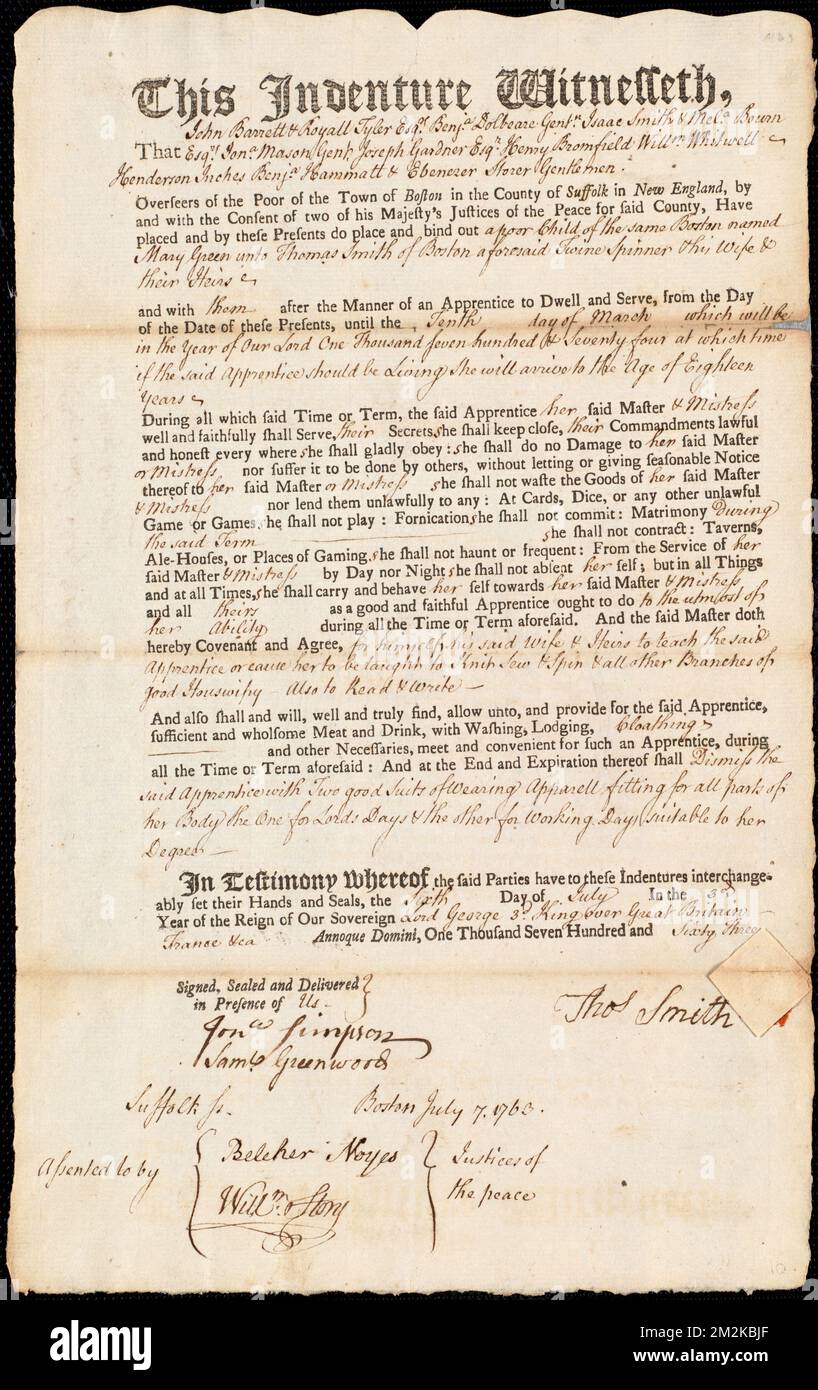 This Indenture Witnesseth,
John Barrett & Royall Tyler Esqrs Benja Dolbeare Gentn Isaac Smith & Mela Bourn
That Esqrs Jona Mason Gentn Joseph Gardner Esqr Henry Bromfield Willm Whitwell
Henderson Inches Benja Hammatt & Ebenezer Storer Gentlemen
Overseers of the Poor of the Town of Boston in the County of Suffolk in New England, by
and with the Consent of two of his Majesty's Justices of the Peace for said County, Have
placed and by these Presents do place and bind out a poor Child of the same Boston named
Mary Green unto Thomas Smith of Boston aforesaid Twine Spinner & his Wife &
their Heirs
and with them after the Manner of an Apprentice to Dwell and Serve, from the Day
of the Date of these Presents, until the Tenth day of March which will be
in the Year of Our Lord One Thousand seven hundred & Seventy four at which time
if the said Apprentice should be Living She will arrive to the Age of Eighteen
Years
During all which said Time or Term, the said Apprentice her said Master & Mistress
well and faithfully shall Serve, their Secrets she shall keep close, their Commandments lawful
and honest every where she shall gladly obey: she shall do no Damage to her said Master
or Mistress nor suffer it to be done by others, without letting or giving seasonable Notice
thereof to her said Master or Mistress she shall not waste the Goods of her said Master
& Mistress nor lend them unlawfully to any: At Cards, Dice, or any other unlawful
Game or Games she shall not play: Fornication she shall not commit: Matrimony During
the said Term she shall not contract: Taverns,
Ale-Houses, or Places of Gaming she shall not haunt or frequent: From the Service of her
said Master & Mistress by Day nor Night she shall not absent her self; but in all Things
and at all Times, she shall carry and behave her self towards her said Master & Mistress
and all theirs as a good and faithful Apprentice ought to do to the utmost of
her Ability during all the Time or Term aforesaid. And the said Master doth
hereby Covenant and Agree, for himself his said Wife & Heirs to teach the said
Apprentice or cause her to be taught to Knit Sew & Spin & all other Branches of
good Houswifry – Also to Read & Write –
And also shall and will, well and truly find, allow unto, and provide for the said Apprentice,
sufficient and wholsome Meat and Drink, with Washing, Lodging, Cloathing
and other Necessaries, meet and convenient for such an Apprentice, during
all the Time or Term aforesaid: And at the End and Expiration thereof shall Dismiss the
said Apprentice with Two good Suits of Wearing Apparell fitting for all parts of
her Body the One for Lords Days & the other for Working Days suitable to her
Degree –
In Testimony whereof the said Parties have to these Indentures interchange-
ably set their Hands and Seals, the Sixth Day of July In the 3d
Year of the Reign of Our Sovereign Lord George 3d King over Great Britain
France &ca Annoque Domini, One Thousand Seven Hundred and Sixty Three
Signed, Sealed and Delivered
in Presence of Us
Thos Smith
Jona Simpson
Saml Greenwood
Suffolk ss. Boston July 7. 1763.
Assented to by
Belcher Noyes
Willm Story
Justices of
the peace
alamy
Image ID: 2M2KBJF
www.alamy.com